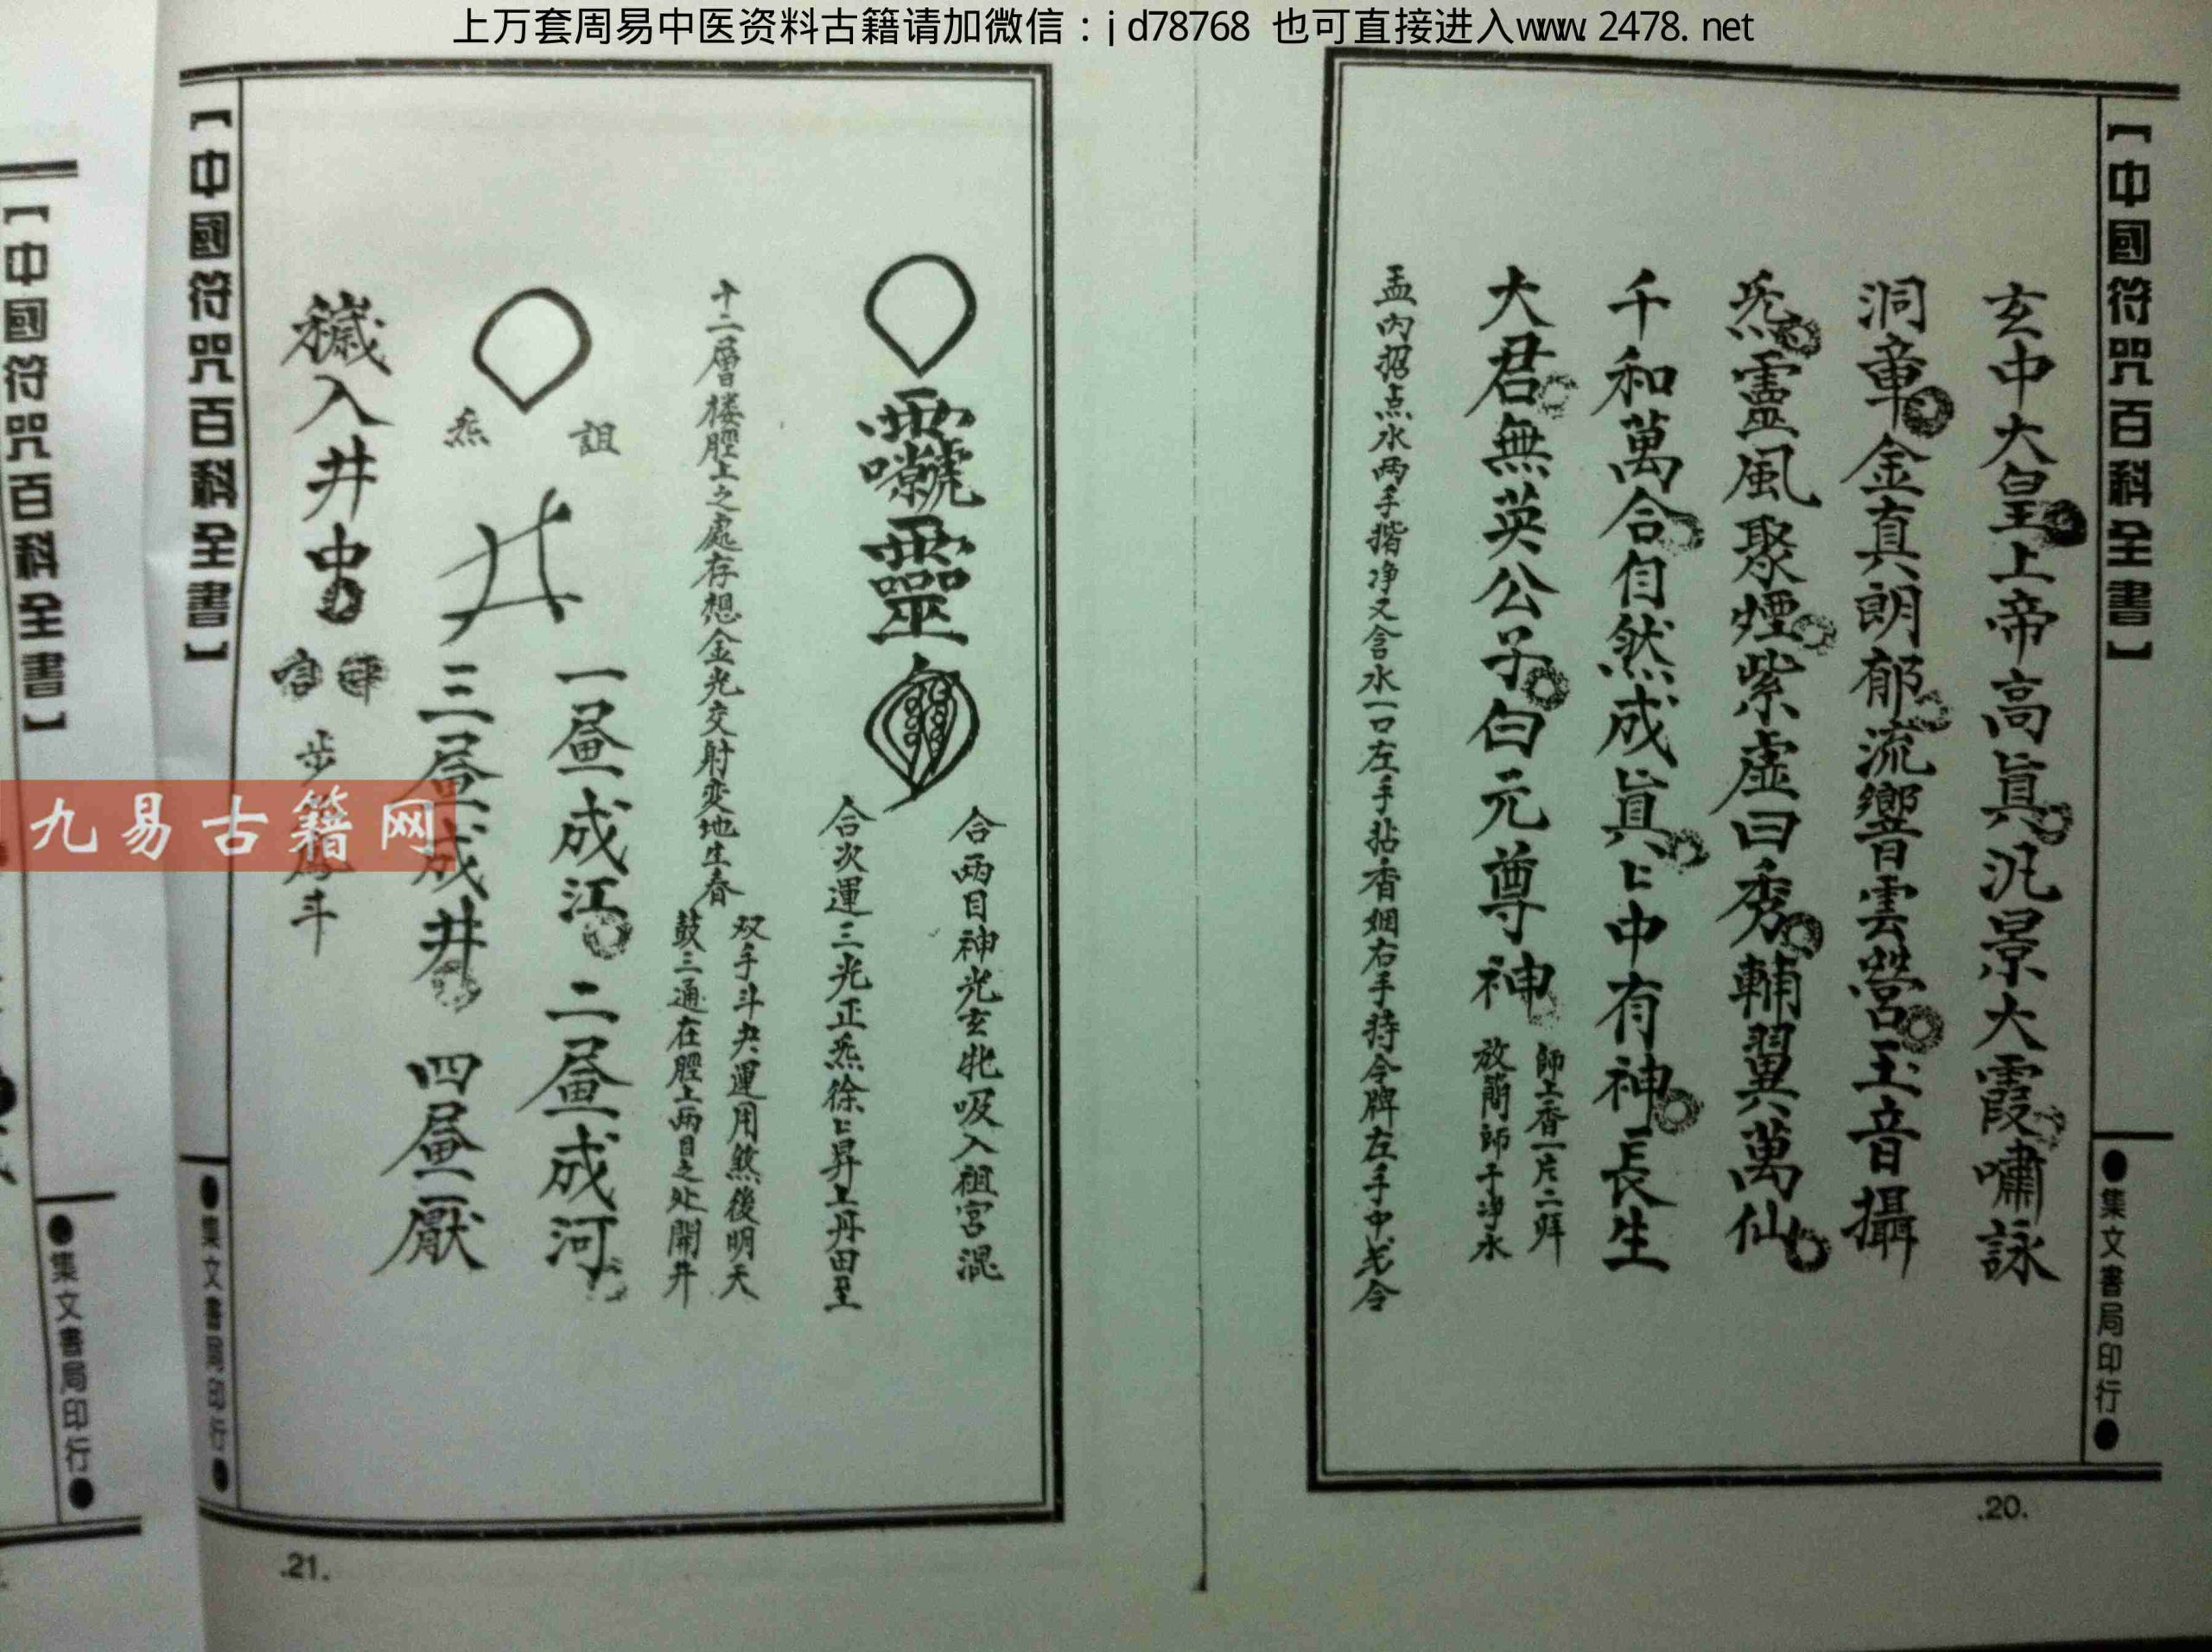 上万套周易中医资料古籍请加微信：jd78768 也可直接进入www.2478.net
【中國符咒百科全書】
●集文書局印行●
玄中大皇上帝高眞汎景大霞嘯詠
洞章金真朗郁流響雲營玉音攝
炁靈風聚煙紫虛曰秀輔翼萬仙
千和萬合自然成眞匕中有神長生
大君無英公子白元尊神
師上香一片二拜
放簡師于净水
盂内招点水两手揩净又含水一口左手拈香烟右手持令牌左手中令
.20.
靈
合兩目神光玄牝吸入祖宮混
合次運三光正炁徐匕昇上丹田至
十二層楼脛上之處存想金光交射変地生春
双手斗央運用煞後明天
鼓三通在脛上两目之处開井
詛
炁
井
一畫成江
二畫成河
三畫成井
四畫厭
穢入井中
步斗
【中國符咒百科全書】
●集文書局印行●
.21.
【中國符咒百科全書】
●集文書局印行●
九易古籍网